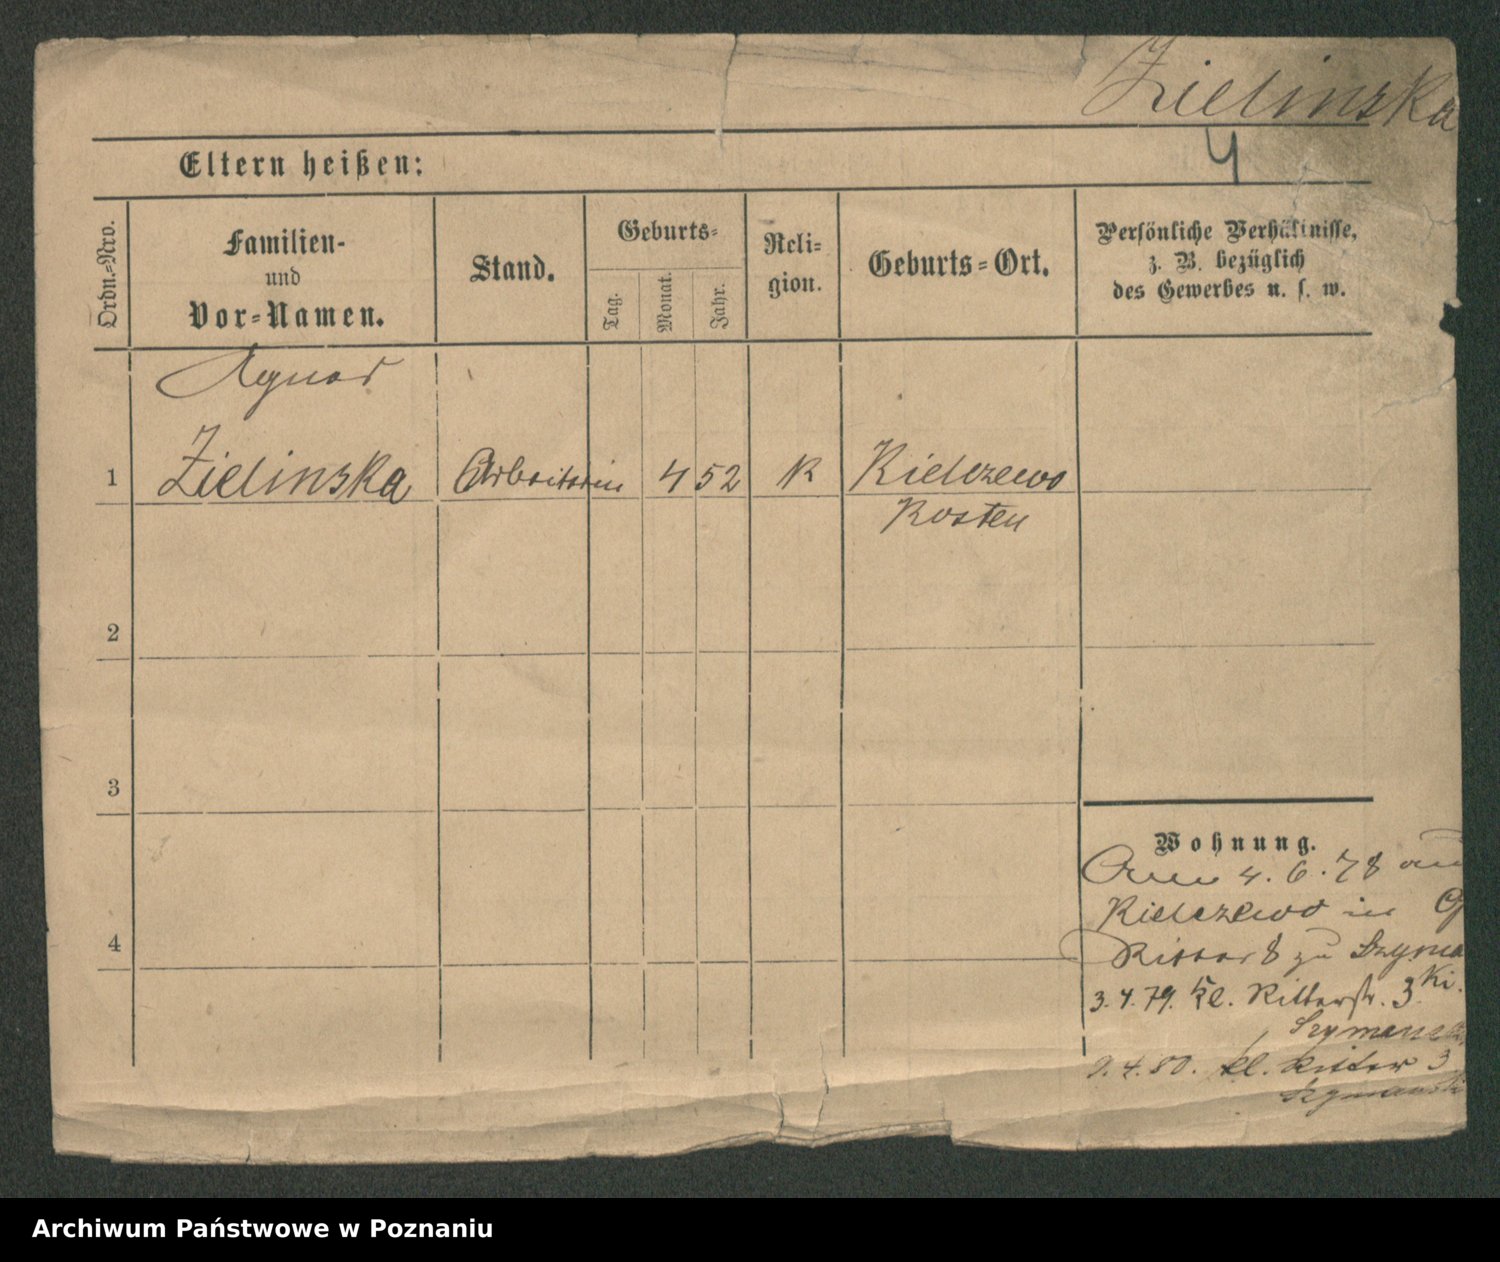 Zielinska
4
Eltern heißen:
Ordn.-Nro.
Familien-
und
Vor-Namen.
Stand.
Geburts-
Tag.
Monat.
Jahr.
Reli-
gion.
Geburts-Ort.
Persönliche Verhältnisse,
z. B. bezüglich
des Gewerbes u. s. w.
Agnes
1 Zielinska Arbeiterin 4 52 K Kielczewo
Kosten
2
3
4
Wohnung.
4. 6. 78 aus
Kielczewo in G
Ritter 8 zu Szyma
ki.
3. 4. 79. kl. Ritterstr. 3
Szymansk
9. 4. 80. kl. Ritter 3
Szymanski
Archiwum Państwowe w Poznaniu